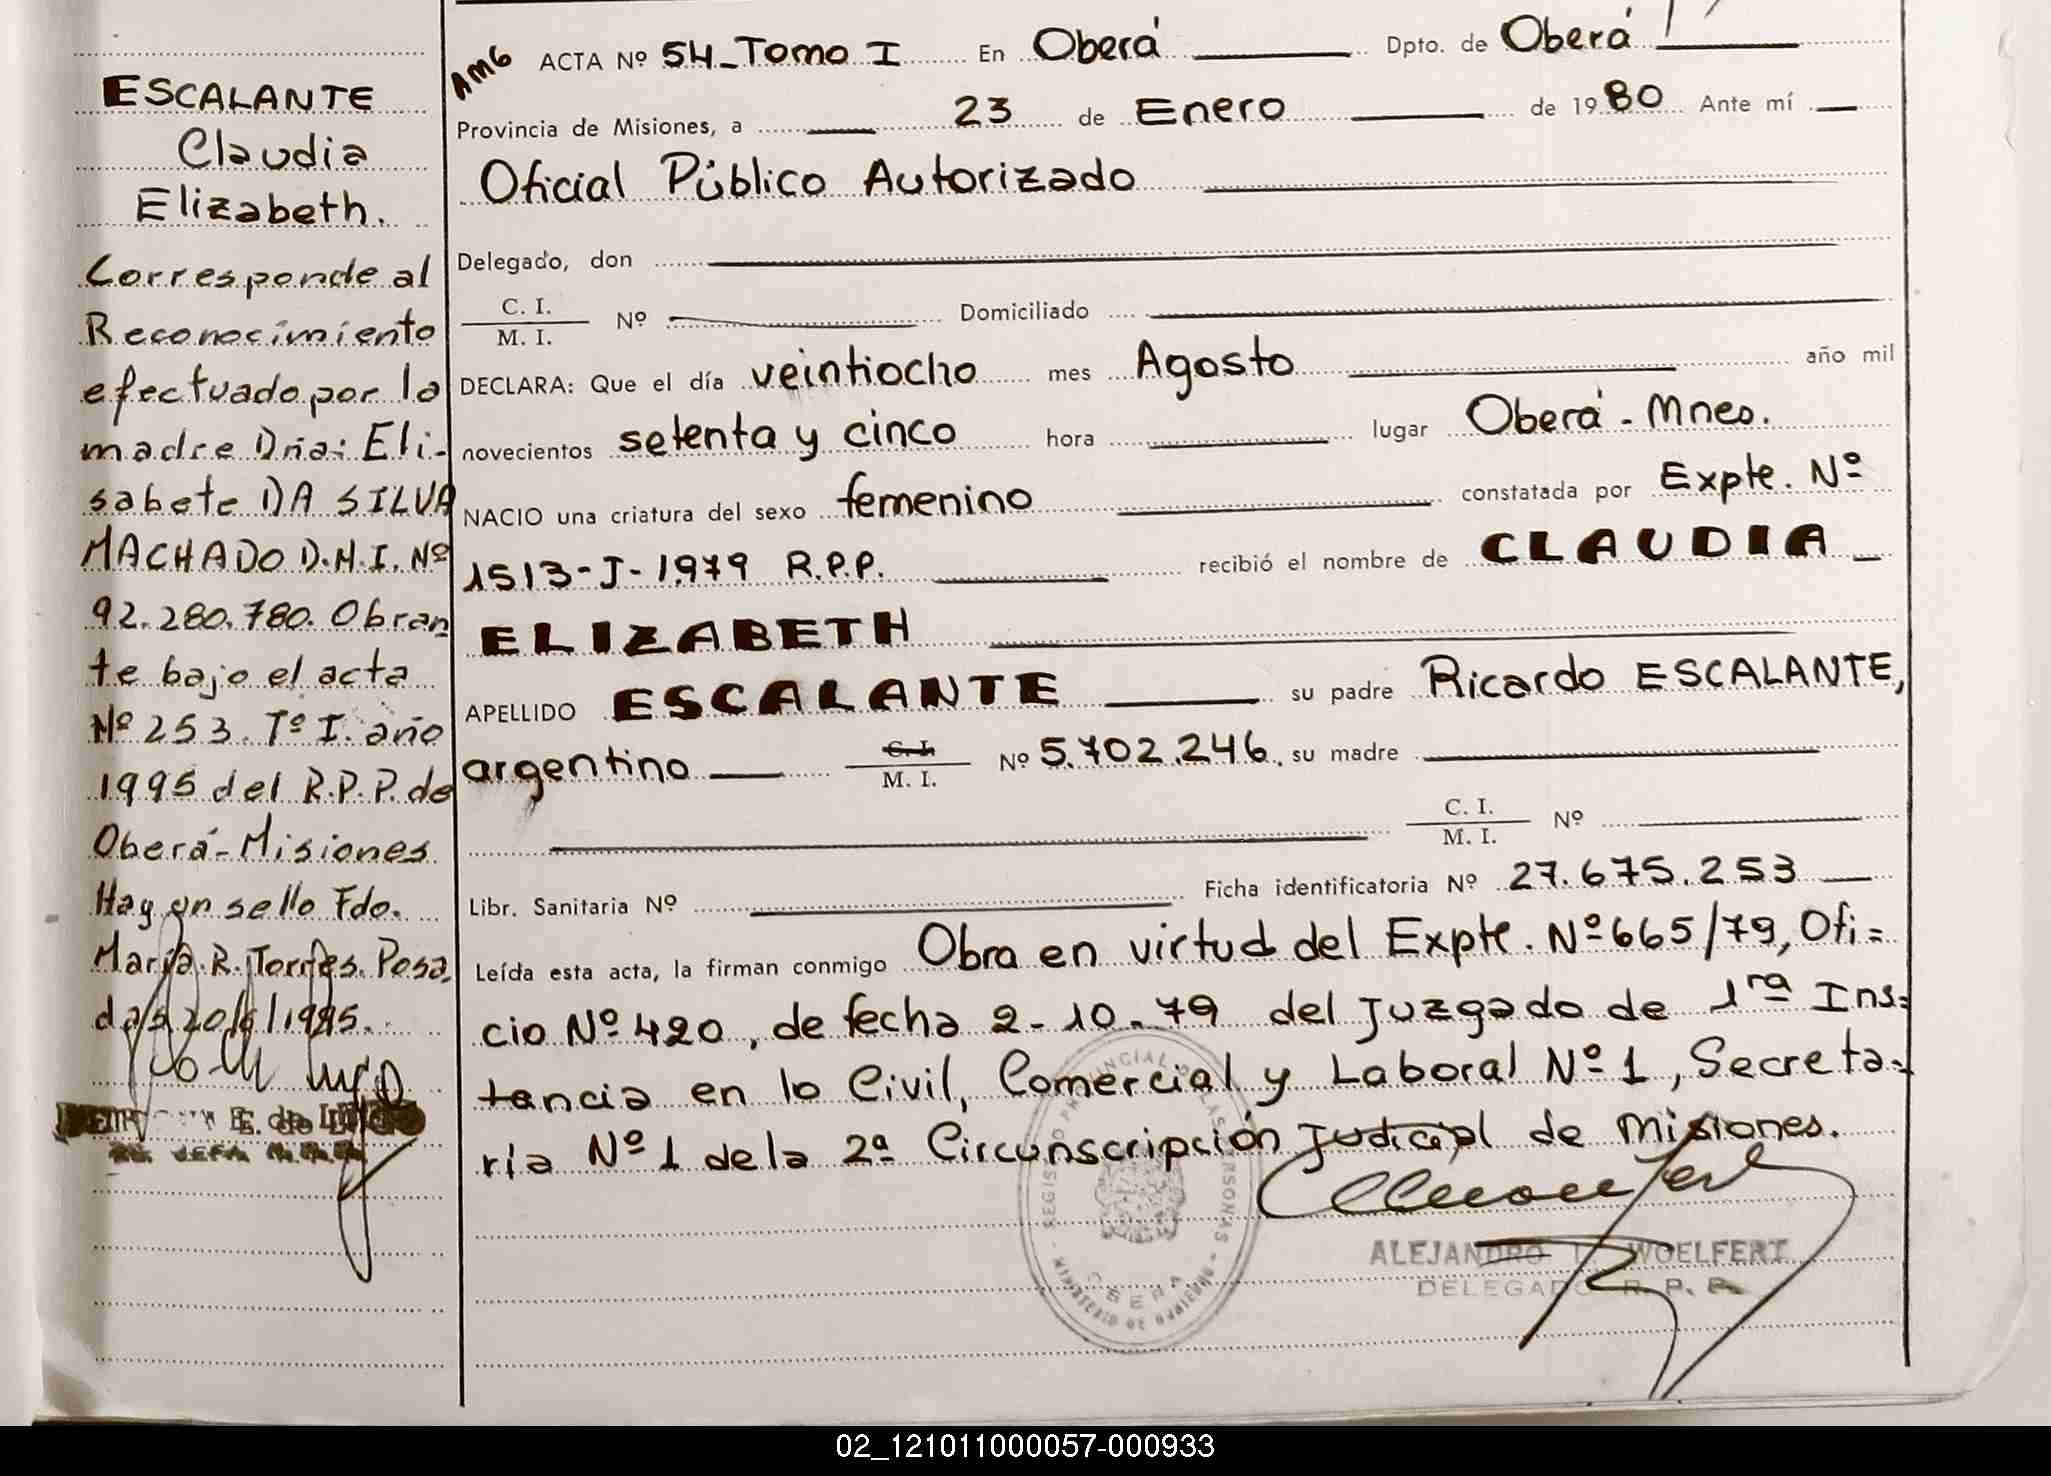 ESCALANTE
Claudia
Elizabeth.
Corresponde al
Reconocimiento
efectuado por la
madre Dña: Eli-
sabete DA SILVA
MACHADO D.N.I. Nº
92.280.780. Obran
te bajo el acta
Nº 253. Tº I. año
1995 del R.P.P. de
Oberá-Misiones
Hay un sello Fdo.
María R. Torres. Posa
das 20/6/1995.
E. de
AMG ACTA Nº 54_Tomo I En Oberá Dpto. de Oberá
Provincia de Misiones, a 23 de Enero de 1980 Ante mí
Oficial Público Autorizado
Delegado, don
C. I.
M. I. Nº Domiciliado
DECLARA: Que el día veintiocho mes Agosto año mil
novecientos setenta y cinco hora lugar Oberá - Mnes.
NACIO una criatura del sexo femenino constatada por Expte. Nº
1513-J-1979 R.P.P. recibió el nombre de CLAUDIA
ELIZABETH
APELLIDO ESCALANTE su padre Ricardo ESCALANTE,
argentino C. I. M. I. Nº 5.702.246. su madre
C. I.
M. I. Nº
Libr. Sanitaria Nº Ficha identificatoria Nº 27.675.253
Leída esta acta, la firman conmigo Obra en virtud del Expte. Nº 665/79, Ofi=
cio Nº 420, de fecha 2-10-79 del Juzgado de 1ra Ins=
tancia en lo Civil, Comercial y Laboral Nº 1, Secreta=
ria Nº 1 de la 2ª Circunscripción Judicial de Misiones.
ALEJANDRO WOELFERT
DELEGADO R. P. P.
OBERA
02_121011000057-000933